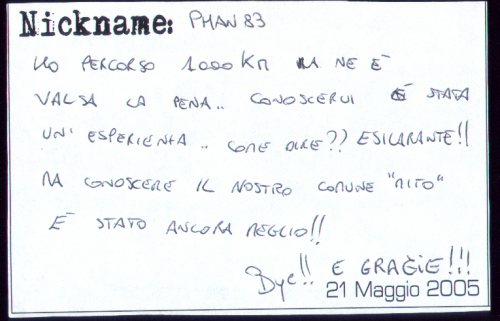 Nickname: PHAN 83
HO PERCORSO 1000 KM MA NE È
VALSA LA PENA.. CONOSCERVI È STATA
UN' ESPERIENZA .. COME DIRE?? ESILARANTE!!
MA CONOSCERE IL NOSTRO COMUNE "MITO"
È STATO ANCORA MEGLIO!!
Bye!! E GRAZIE!!!
21 Maggio 2005